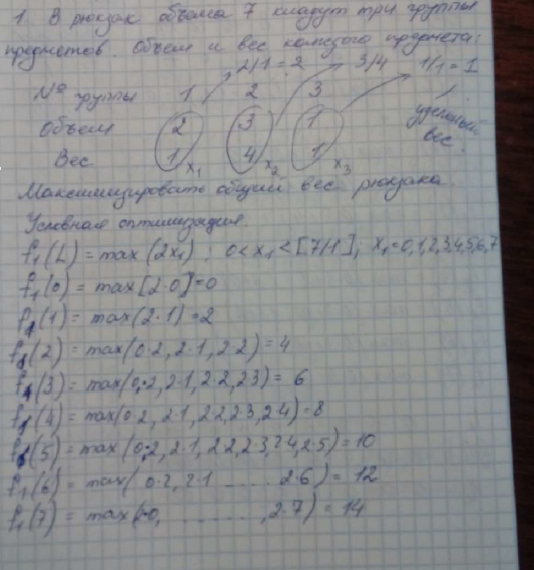 1. В рюкзак объема 7 кладут три группы
предметов. Объем и вес каждого предмета:
2/1 = 2 3/4 1/1 = 1
№ группы 1 2 3
удельный
вес
Объем 2 3 1
Вес 1 x₁ 4 x₂ 1 x₃
Максимизировать общий вес рюкзака.
Условная оптимизация.
f₁(L) = max (2x₁) ; 0<x₁<[7/1]; x₁=0,1,2,3,4,5,6,7
f₁(0) = max[2·0]=0
f₁(1) = max(2·1) =2
f₁(2) = max(0·2, 2·1, 2·2) = 4
f₁(3) = max(0·2, 2·1, 2·2, 2·3) = 6
f₁(4) = max(0·2, 2·1, 2·2, 2·3, 2·4) = 8
f₁(5) = max (0·2, 2·1, 2·2, 2·3, 2·4, 2·5) = 10
f₁(6) = max( 0·2, 2·1 ...... 2·6) = 12
f₁(7) = max(2·0, ............, 2·7) = 14